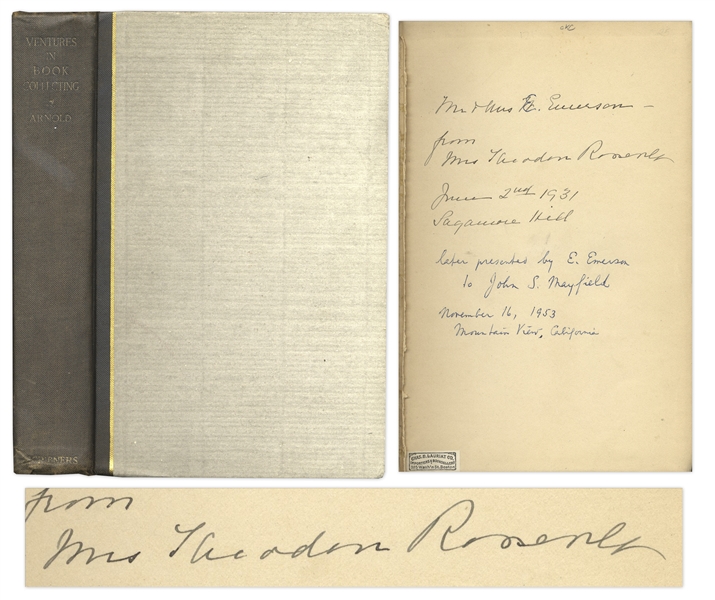 VENTURES
IN
BOOK
COLLECTING
ARNOLD
SCRIBNERS
Mr & Mrs E. Emerson —
from
Mrs Theodore Roosevelt
June 2nd 1931
Sagamore Hill
later presented by E. Emerson
to John S. Mayfield
November 16, 1953
Mountain View, California
CHAS. E. LAURIAT CO.
from
Mrs Theodore Roosevelt